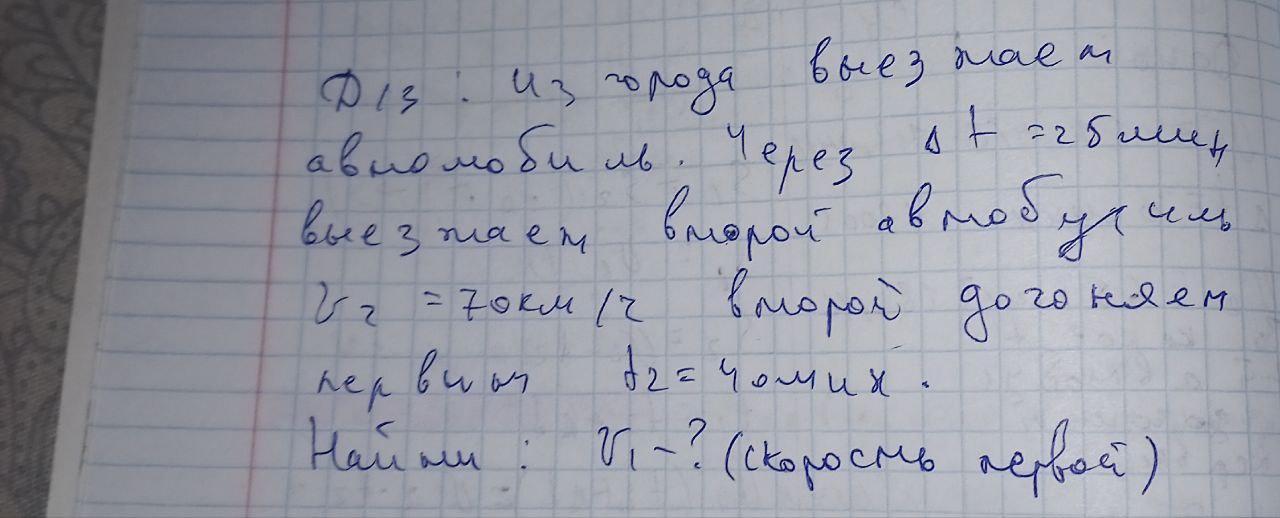 Д/з : Из города выезжает
автомобиль. Через Δt = 25 мин
выезжает второй
V₂ = 70 км/ч второй догоняет
t₂ = 40 мин.
Найти : V₁ - ? (скорость первой)